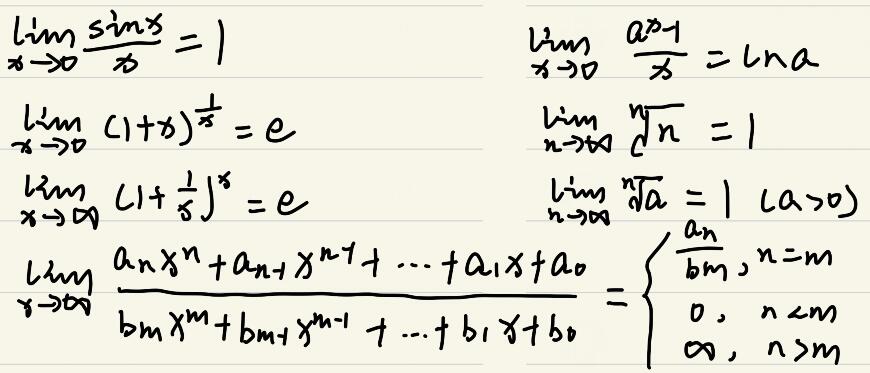 lim_{x→0} sinx/x = 1
lim_{x→0} (a^x-1)/x = lna
lim_{x→0} (1+x)^{1/x} = e
lim_{n→∞} ⁿ√n = 1
lim_{x→∞} (1+1/x)^x = e
lim_{n→∞} ⁿ√a = 1 (a>0)
lim_{x→∞} (a_n x^n + a_{n-1} x^{n-1} + ... + a_1 x + a_0)/(b_m x^m + b_{m-1} x^{m-1} + ... + b_1 x + b_0) = { a_n/b_m, n=m
0, n<m
∞, n>m